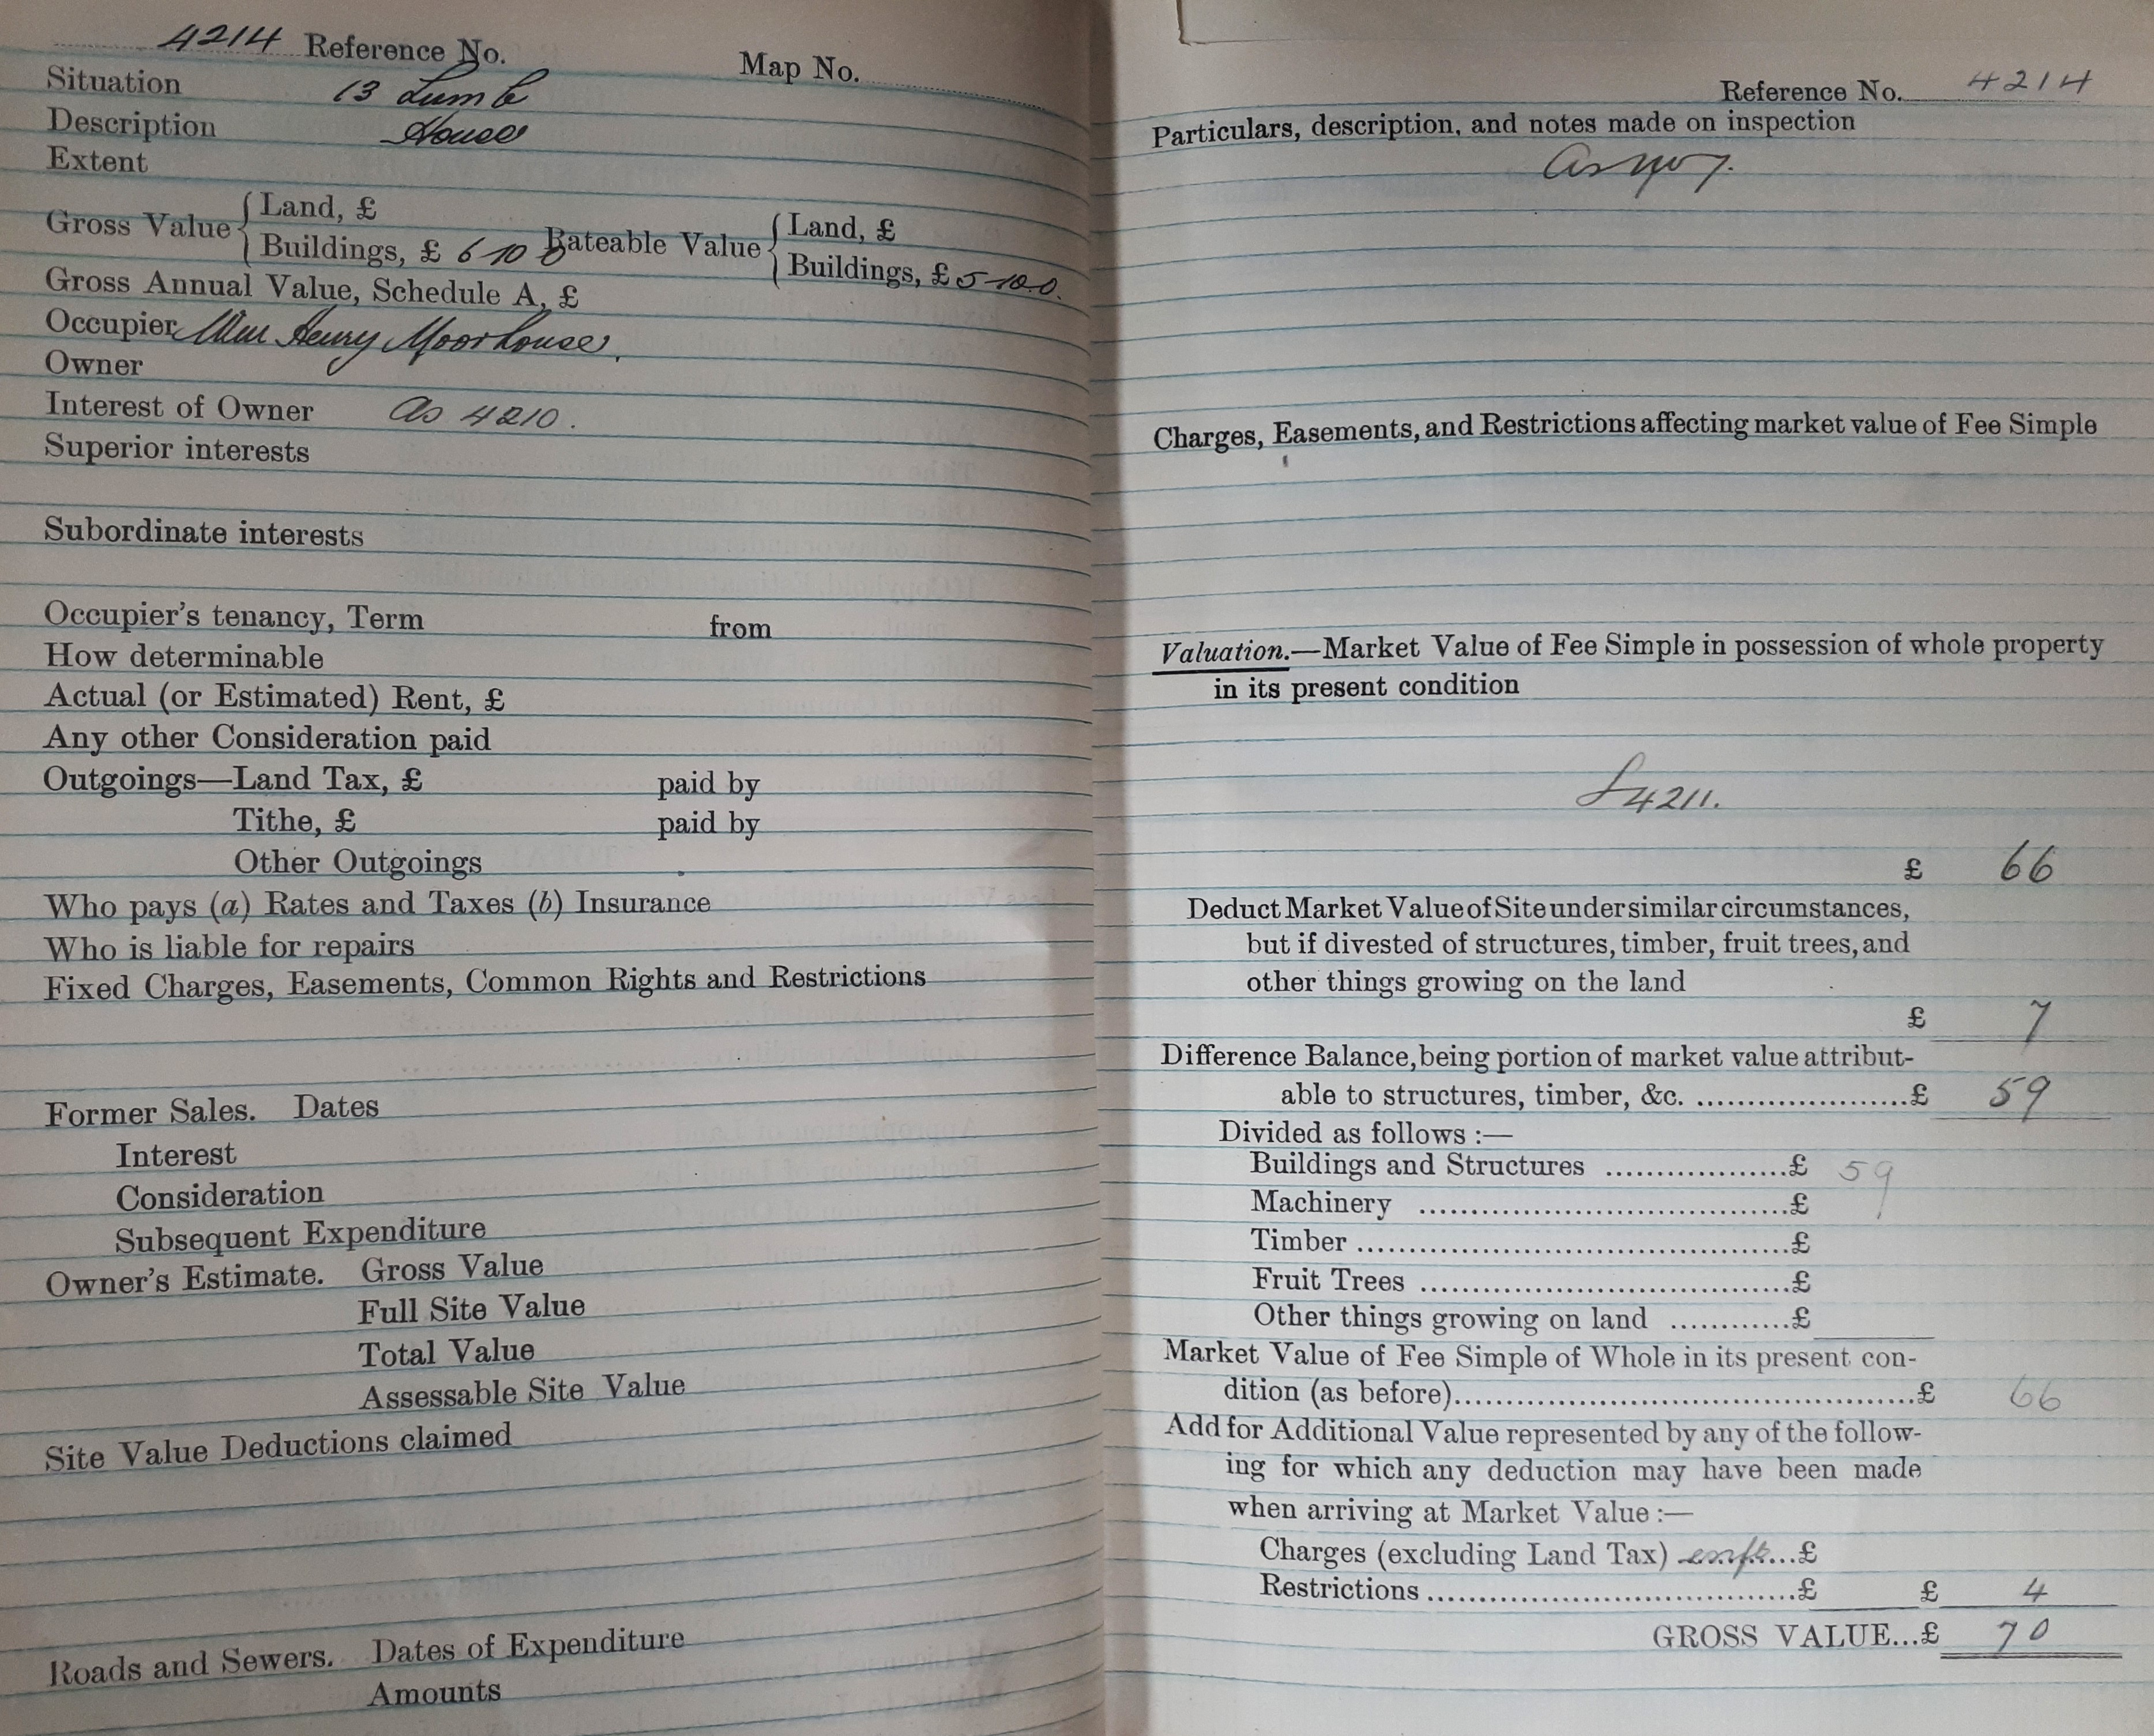 4214 Reference No. Map No.
Situation 13 Lumb
Description House
Extent
Gross Value { Land, £
Buildings, £ 6 10 0 Rateable Value { Land, £
Buildings, £ 5-10.0.
Gross Annual Value, Schedule A, £
Occupier Wm Henry Moorhouse.
Owner
Interest of Owner as 4210.
Superior interests
Subordinate interests
Occupier's tenancy, Term from
How determinable
Actual (or Estimated) Rent, £
Any other Consideration paid
Outgoings—Land Tax, £ paid by
Tithe, £ paid by
Other Outgoings
Who pays (a) Rates and Taxes (b) Insurance
Who is liable for repairs
Fixed Charges, Easements, Common Rights and Restrictions
Former Sales. Dates
Interest
Consideration
Subsequent Expenditure
Owner's Estimate. Gross Value
Full Site Value
Total Value
Assessable Site Value
Site Value Deductions claimed
Roads and Sewers. Dates of Expenditure
Amounts
Reference No. 4214
Particulars, description, and notes made on inspection
as
Charges, Easements, and Restrictions affecting market value of Fee Simple
Valuation.—Market Value of Fee Simple in possession of whole property
in its present condition
4211.
£ 66
Deduct Market Value of Site under similar circumstances,
but if divested of structures, timber, fruit trees, and
other things growing on the land
£ 7
Difference Balance, being portion of market value attribut-
able to structures, timber, &c. ......................£ 59
Divided as follows :—
Buildings and Structures ...................£ 59
Machinery .......................................£
Timber .............................................£
Fruit Trees .......................................£
Other things growing on land ............£
Market Value of Fee Simple of Whole in its present con-
dition (as before)...............................................£ 66
Add for Additional Value represented by any of the follow-
ing for which any deduction may have been made
when arriving at Market Value :—
Charges (excluding Land Tax) ...£
Restrictions .......................................£ £ 4
GROSS VALUE...£ 70